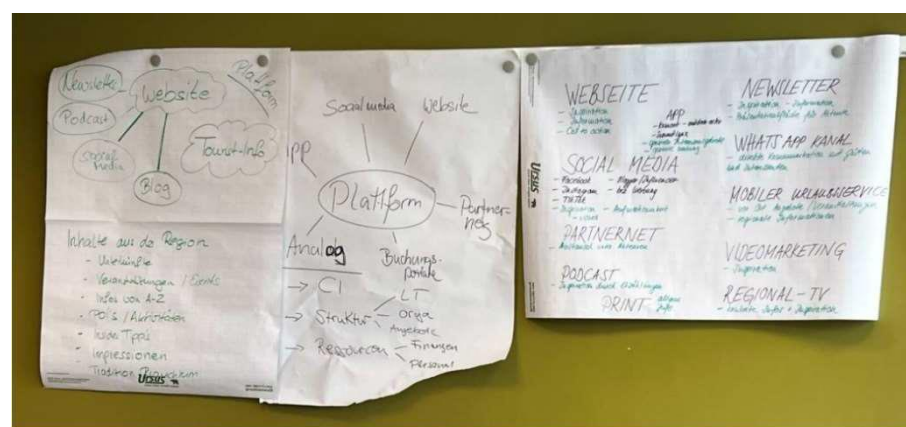 Newsletter
Website
Plattform
Podcast
Social Media
Tourist-Info
Blog
Inhalte aus der Region
- Unterkünfte
- Veranstaltungen / Events
- Infos von A-Z
- POI's / Aktivitäten
- Insider Tipps
- Impressionen
- Tradition Brauchtum
URSUS
Social media
Website
APP
Plattform
Partnernetz
Analog
Buchungsportale
→ CI
→ Struktur
LT
Orga
Angebote
→ Ressourcen
Finanzen
Personal
WEBSEITE
- Inspiration
- Information
- Call to action
APP
SOCIAL MEDIA
- Facebook
- Instagram
- Blogger/Influencer
- Inspiration - Aufmerksamkeit
PARTNERNET
PODCAST
- Inspiration durch Erzählungen
PRINT
URSUS
NEWSLETTER
- Inspiration - Information
WHATSAPP KANAL
- direkte Kommunikation mit Gästen
und Interessenten
MOBILER URLAUBSERVICE
- vor Ort Angebote / Veranstaltungen
- regionale Informationen
VIDEOMARKETING
- Inspiration
REGIONAL-TV
- Infos + Inspiration